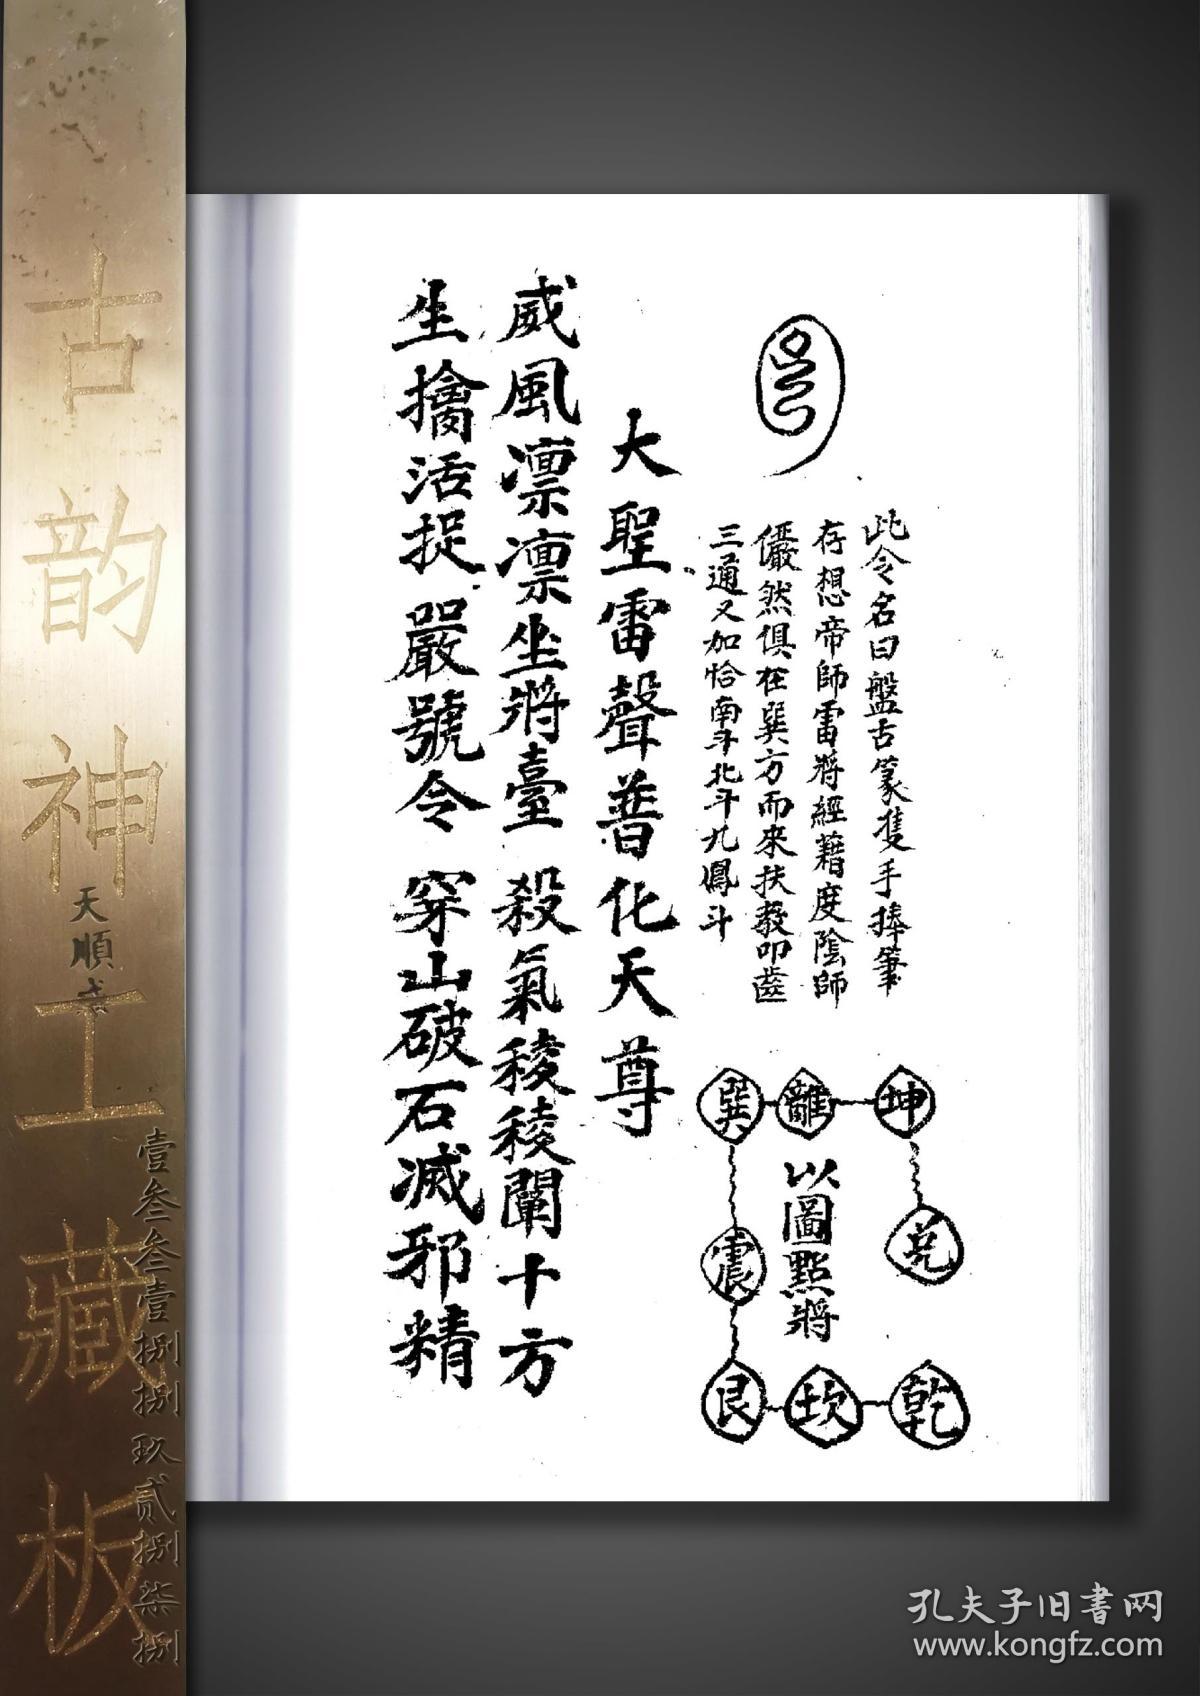 此令名曰盤古篆隻手捧筆
存想帝師雷將經藉度陰師
儼然俱在巽方而來扶教叩齒
三通又加恰南斗北斗九鳳斗
坤 離 巽
兌 震
乾 坎 艮
以圖點將
大聖雷聲普化天尊
威風凛凛坐將臺 殺氣稜稜闡十方
生擒活捉嚴號令 穿山破石滅邪精
古韵神工藏板
天順
壹叁叁壹捌捌玖贰捌柒捌
孔夫子旧书网
www.kongfz.com